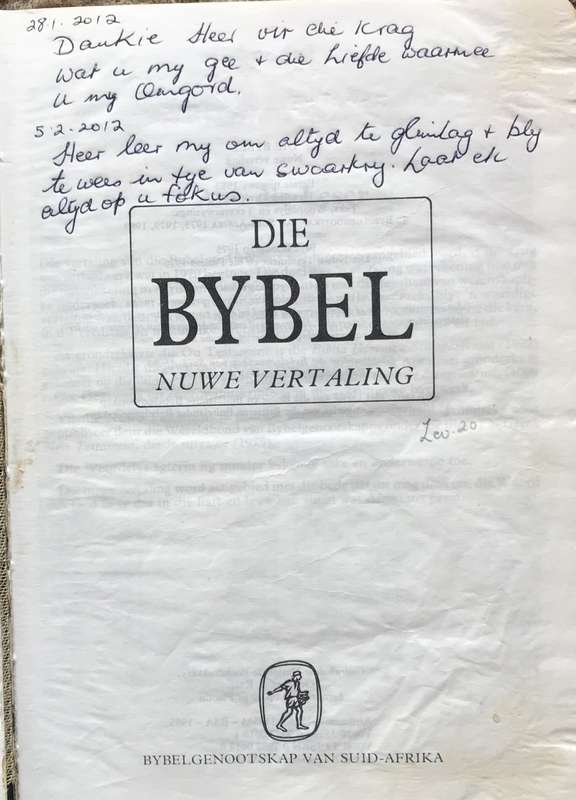 28.1.2012
Dankie Heer vir die Krag
wat u my gee + die Liefde waarmee
u my Omgord.
5.2.2012
Heer leer my om altyd te glimlag + bly
te wees in tye van swaarkry. Laat ek
altyd op u fokus.
DIE
BYBEL
NUWE VERTALING
Lev. 20
BYBELGENOOTSKAP VAN SUID-AFRIKA